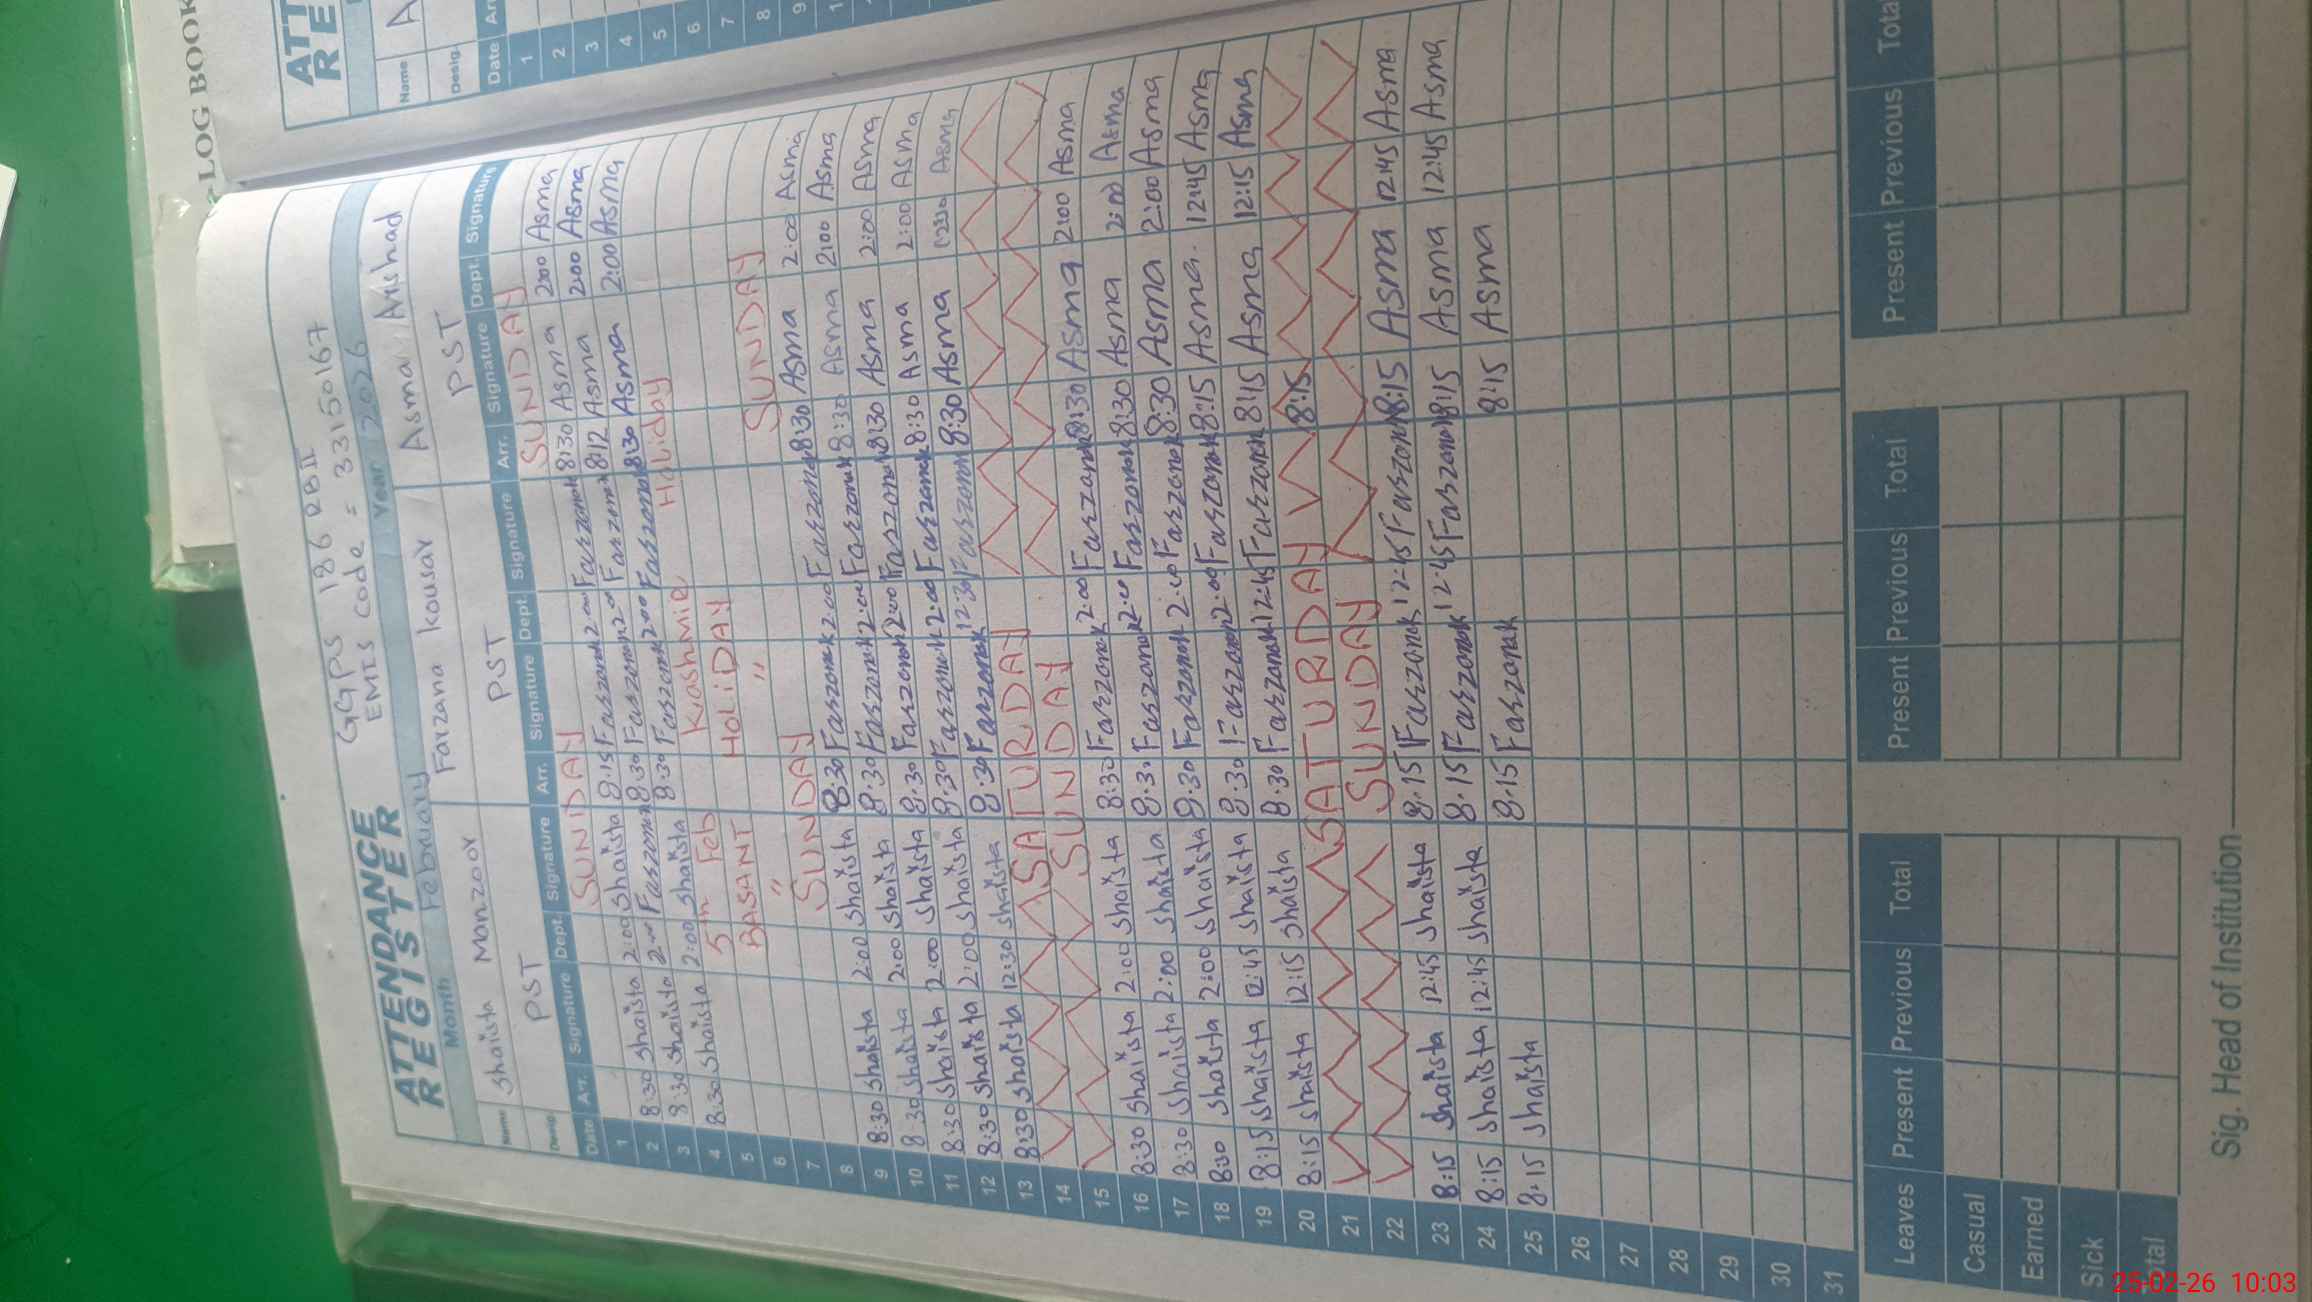 LOG BOOK
GGPS 186 RB II
EMIS Code = 33150167
ATTENDANCE
REGISTER
Month February Year 2026
Name Shaista Manzoor Farzana kousar Asma Arshad
Desig. PST PST PST
Date Arr. Signature Dept. Signature Arr. Signature Dept. Signature Arr. Signature Dept. Signature
1 SUNDAY SUNDAY SUNDAY
2 8:30 Shaista 2:00 Shaista 8:15 Farzanak 2:00 Farzanak 8:30 Asma 2:00 Asma
3 8:30 Shaista 2:00 Farzanak 8:30 Farzanak 2:00 Farzanak 8:12 Asma 2:00 Asma
4 8:30 Shaista 2:00 Shaista 8:30 Farzanak 2:00 Farzanak 8:30 Asma 2:00 Asma
5 5th Feb Kashmir Holiday
6 BASANT HOLiDAY
7 " "
8 SUNDAY SUNDAY
9 8:30 Shaista 2:00 Shaista 8:30 Farzanak 2:00 Farzanak 8:30 Asma 2:00 Asma
10 8:30 Shaista 2:00 Shaista 8:30 Farzanak 2:00 Farzanak 8:30 Asma 2:00 Asma
11 8:30 Shaista 2:00 Shaista 8:30 Farzanak 2:00 Farzanak 8:30 Asma 2:00 Asma
12 8:30 Shaista 2:00 Shaista 8:30 Farzanak 2:00 Farzanak 8:30 Asma 2:00 Asma
13 8:30 Shaista 12:30 Shaista 8:30 Farzanak 12:30 Farzanak 8:30 Asma Asma
14 SATURDAY
15 SUNDAY
16 8:30 Shaista 2:00 Shaista 8:30 Farzanak 2:00 Farzanak 8:30 Asma 2:00 Asma
17 8:30 Shaista 2:00 Shaista 8:30 Farzanak 2:00 Farzanak 8:30 Asma 2:00 Asma
18 8:30 Shaista 2:00 Shaista 8:30 Farzanak 2:00 Farzanak 8:30 Asma 2:00 Asma
19 8:15 Shaista 12:45 Shaista 8:30 Farzanak 2:00 Farzanak 8:15 Asma 12:45 Asma
20 8:15 Shaista 12:15 Shaista 8:30 Farzanak 12:45 Farzanak 8:15 Asma 12:15 Asma
21 SATURDAY 8:15
22 SUNDAY
23 8:15 Shaista 12:45 Shaista 8:15 Farzanak 12:45 Farzanak 8:15 Asma 12:45 Asma
24 8:15 Shaista 12:45 Shaista 8:15 Farzanak 12:45 Farzanak 8:15 Asma 12:45 Asma
25 8:15 Shaista 8:15 Farzanak 8:15 Asma
26
27
28
29
30
31
Leaves Present Previous Total Present Previous Total Present Previous Total
Casual
Earned
Sick
Total
Sig. Head of Institution
ATT
RE
Name A
Desig.
Date Arr
1
2
3
4
5
6
7
8
9
25-02-26 10:03